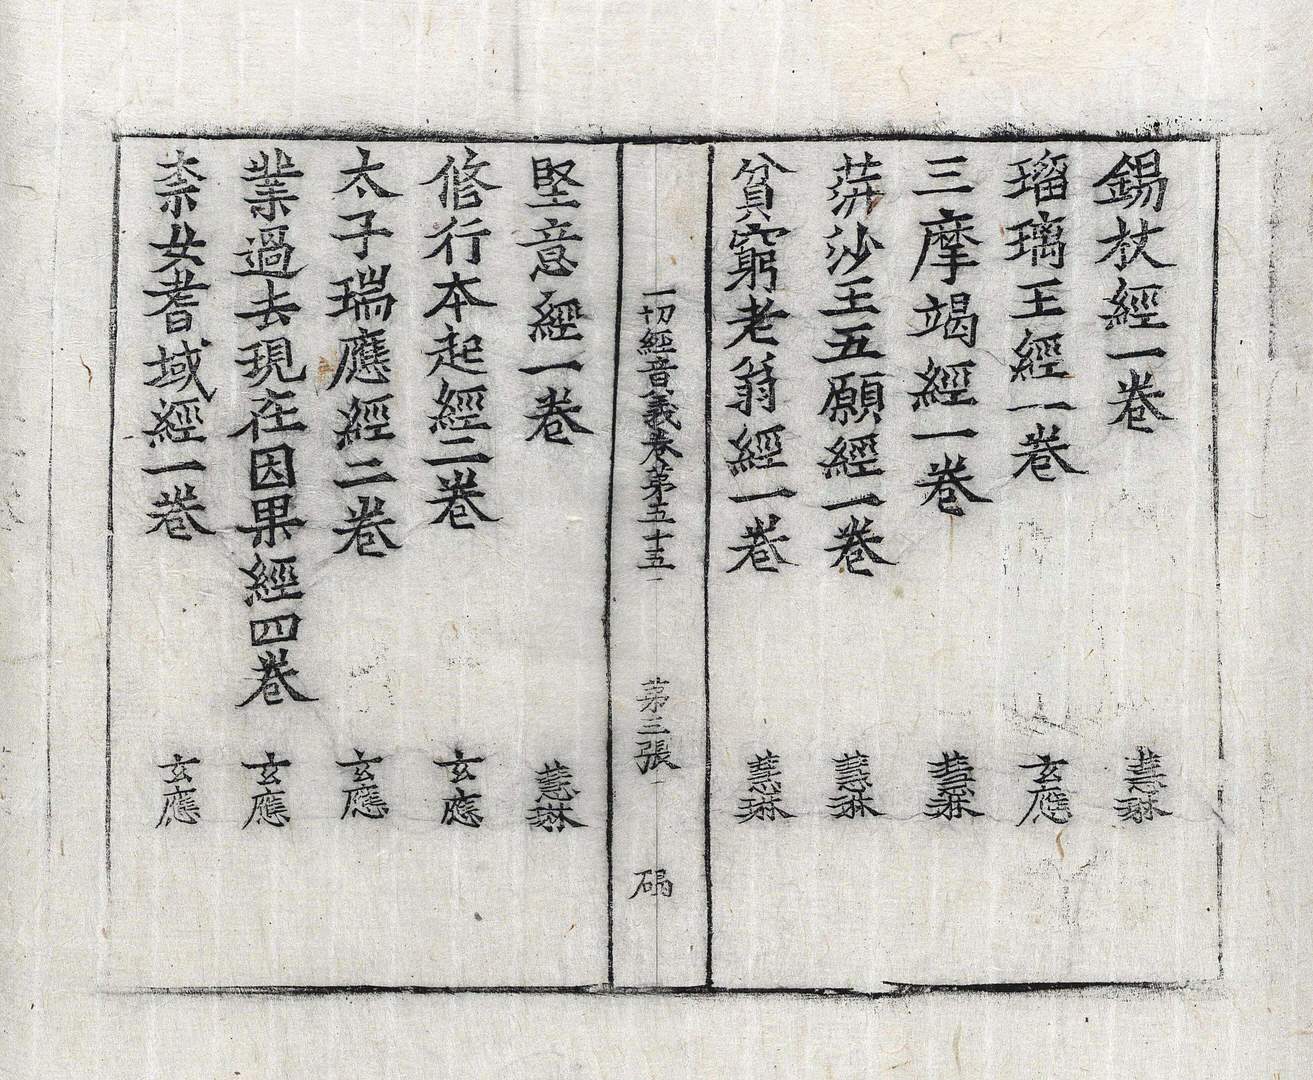 錫杖經一卷 慧琳
瑠璃王經一卷 玄應
三摩竭經一卷 慧琳
蓱沙王五願經一卷 慧琳
貧窮老翁經一卷 慧琳
一切經音義卷第五十五 第三張 碣
堅意經一卷 慧琳
修行本起經二卷 玄應
太子瑞應經二卷 玄應
業過去現在因果經四卷 玄應
柰女耆域經一卷 玄應